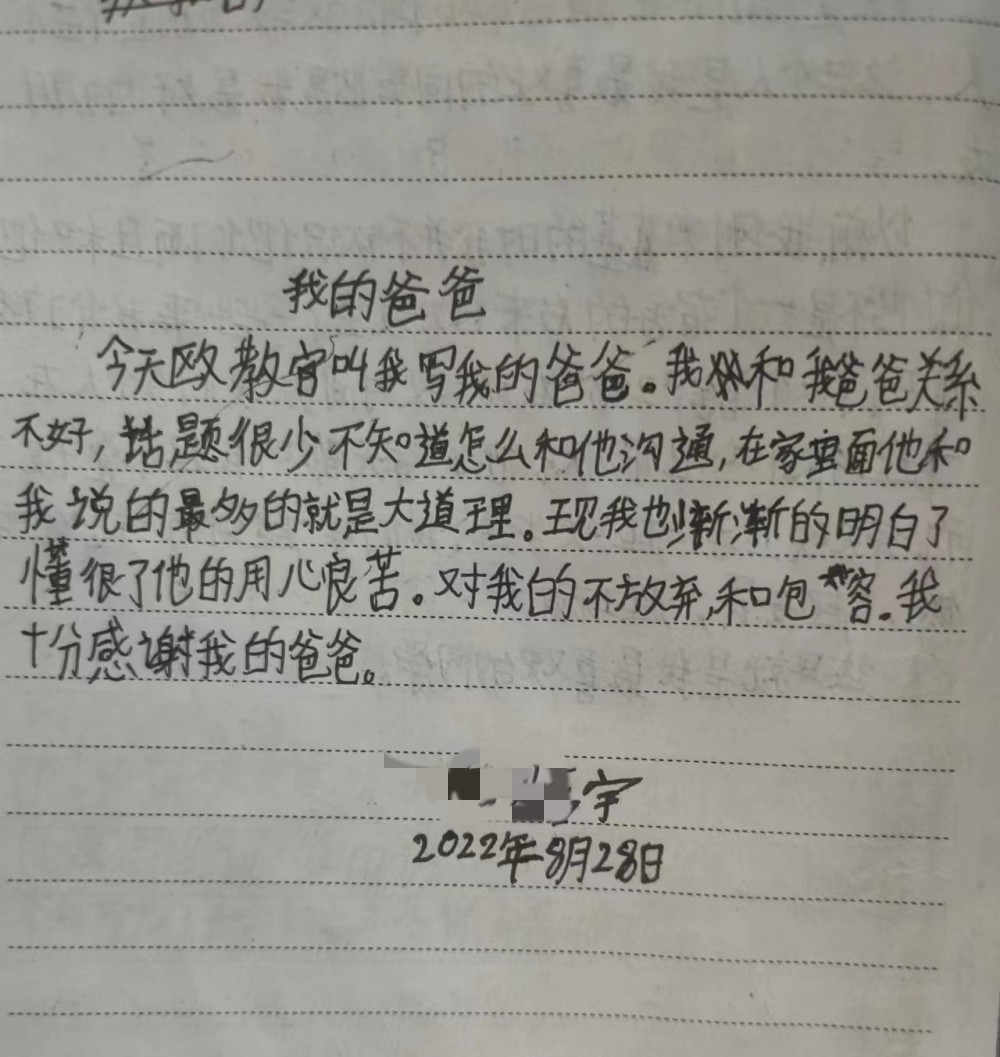 我的爸爸
今天欧教官叫我写我的爸爸。我和我爸爸关系
不好,话题很少不知道怎么和他沟通,在家里面他和
我说的最多的就是大道理。现我也渐渐的明白了
懂很了他的用心良苦。对我的不放弃,和包容。我
十分感谢我的爸爸。
宇
2022年8月28日